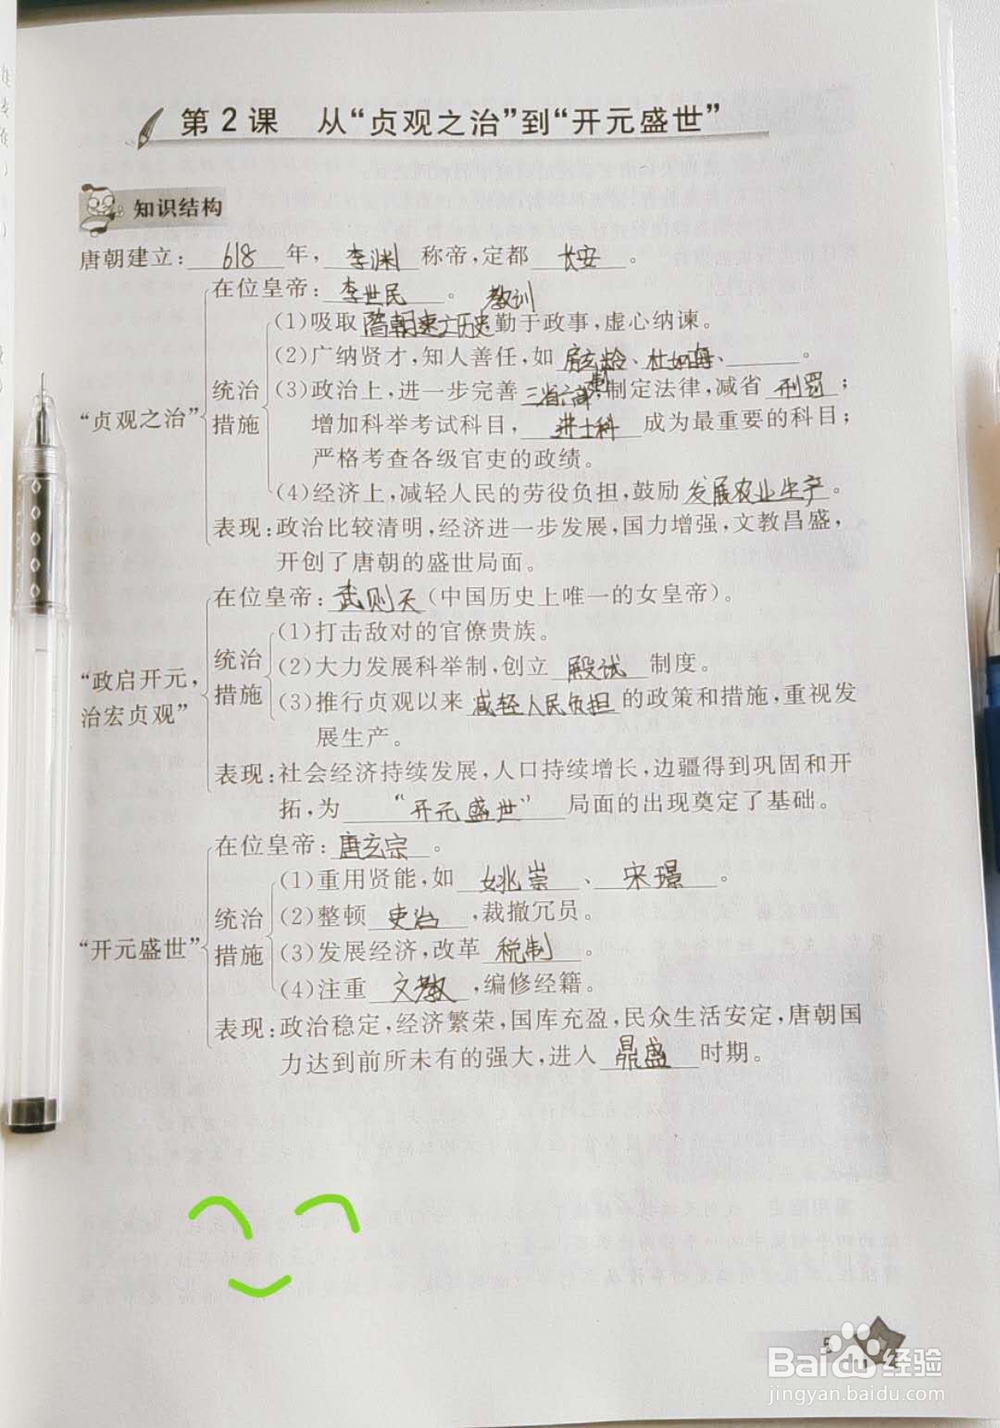 第2课 从“贞观之治”到“开元盛世”
知识结构
唐朝建立：618年，李渊称帝，定都长安。
在位皇帝：李世民。 教训
(1)吸取隋朝速亡历史勤于政事，虚心纳谏。
(2)广纳贤才，知人善任，如房玄龄、杜如晦、______。
统治措施
(3)政治上，进一步完善三省六部制，制定法律，减省刑罚；
“贞观之治”
增加科举考试科目，进士科成为最重要的科目；
严格考查各级官吏的政绩。
(4)经济上，减轻人民的劳役负担，鼓励发展农业生产。
表现：政治比较清明，经济进一步发展，国力增强，文教昌盛，
开创了唐朝的盛世局面。
在位皇帝：武则天(中国历史上唯一的女皇帝)。
(1)打击敌对的官僚贵族。
统治措施
(2)大力发展科举制，创立殿试制度。
“政启开元，
治宏贞观”
(3)推行贞观以来减轻人民负担的政策和措施，重视发
展生产。
表现：社会经济持续发展，人口持续增长，边疆得到巩固和开
拓，为“开元盛世”局面的出现奠定了基础。
在位皇帝：唐玄宗。
(1)重用贤能，如姚崇、宋璟。
统治措施
(2)整顿吏治，裁撤冗员。
“开元盛世”
(3)发展经济，改革税制。
(4)注重文教，编修经籍。
表现：政治稳定，经济繁荣，国库充盈，民众生活安定，唐朝国
力达到前所未有的强大，进入鼎盛时期。
5
Baidu经验
jingyan.baidu.com